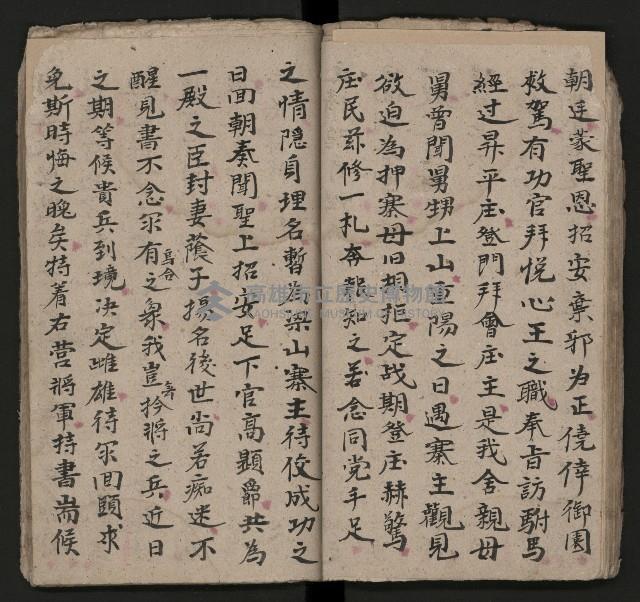 朝廷蒙聖恩招安棄邪为正僥倖御園
救駕有功官拜悦心王之職奉旨訪駙馬
經过昇平庄登門拜會庄主是我舍親母
舅曾聞舅甥上山重陽之日遇寨主觀見
欲迫為押寨母旧相拒定战期登庄赫驚
庄民茲修一札奔報知之若念同党手足
之情隐身埋名暫為梁山寨主待佼成功之
日回朝奏聞聖上招安足下官高顕爵共為
一殿之臣封妻蔭子揚名後世尚若痴迷不
醒見書不念尔有烏合之衆我豈矜將之兵近日
之期等候貴兵到境决定雌雄待尔回頭求
免斯時悔之晚矣特着右营將軍持書耑候
高雄市立歷史博物館
KAOHSIUNG MUSEUM OF HISTORY